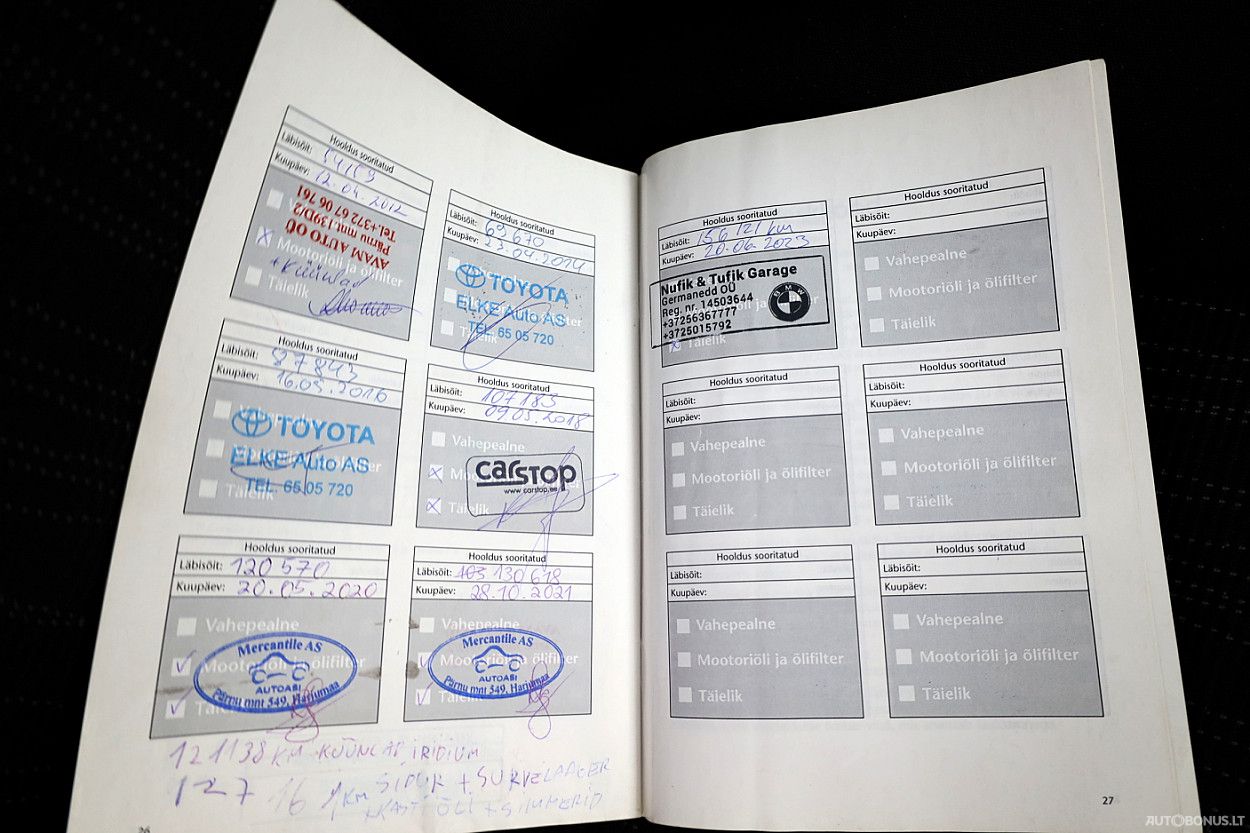 Hooldus sooritatud
Läbisõit: 54153
Kuupäev: 12.04.2012
AVAM AUTO OÜ
Pärnu mnt.139D/2
Tel.+372 67 06 761
Mootoriõli ja õlifilter
+ küünlad
Täielik
Hooldus sooritatud
Läbisõit: 69670
Kuupäev: 23.04.2014
TOYOTA
ELKE Auto AS
TEL. 65 05 720
Hooldus sooritatud
Läbisõit: 87843
Kuupäev: 16.05.2016
TOYOTA
ELKE Auto AS
TEL. 65 05 720
Hooldus sooritatud
Läbisõit: 107183
Kuupäev: 09.05.2018
Vahepealne
carstop
www.carstop.ee
Täielik
Hooldus sooritatud
Läbisõit: 120 570
Kuupäev: 20.05.2020
Vahepealne
Mootoriõli ja õlifilter
Mercantile AS
AUTOABI
Pärnu mnt 549, Harjumaa
Hooldus sooritatud
Läbisõit: 130 618
Kuupäev: 28.10.2021
Vahepealne
Mootoriõli ja õlifilter
Mercantile AS
AUTOABI
Pärnu mnt 549, Harjumaa
121138 KM KÜÜNLAD IRIDIUM
127 16 KM SIDUR + SURVELAAGER
+ KASTIÕLI + SIMMERID
26
Hooldus sooritatud
Läbisõit: 156 121 km
Kuupäev: 20.06.2023
Nufik & Tufik Garage
Germanedd OÜ
Reg. nr. 14503644
+37256367777
+3725015792
BMW
Täielik
Hooldus sooritatud
Läbisõit:
Kuupäev:
Vahepealne
Mootoriõli ja õlifilter
Täielik
Hooldus sooritatud
Läbisõit:
Kuupäev:
Vahepealne
Mootoriõli ja õlifilter
Täielik
Hooldus sooritatud
Läbisõit:
Kuupäev:
Vahepealne
Mootoriõli ja õlifilter
Täielik
Hooldus sooritatud
Läbisõit:
Kuupäev:
Vahepealne
Mootoriõli ja õlifilter
Täielik
Hooldus sooritatud
Läbisõit:
Kuupäev:
Vahepealne
Mootoriõli ja õlifilter
Täielik
27
AUTOBONUS.LT